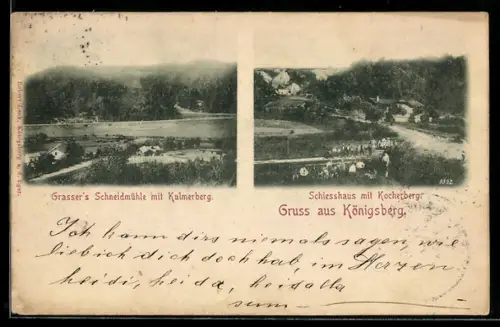 Grasser's Schneidmühle mit Kulmerberg.
Schiesshaus mit Kocherberg.
8812
Gruss aus Königsberg.
Ich kann dirs niemals sagen, wie
lieb ich dich doch hab, im Herzen
heidi, heida, heidalla
sum